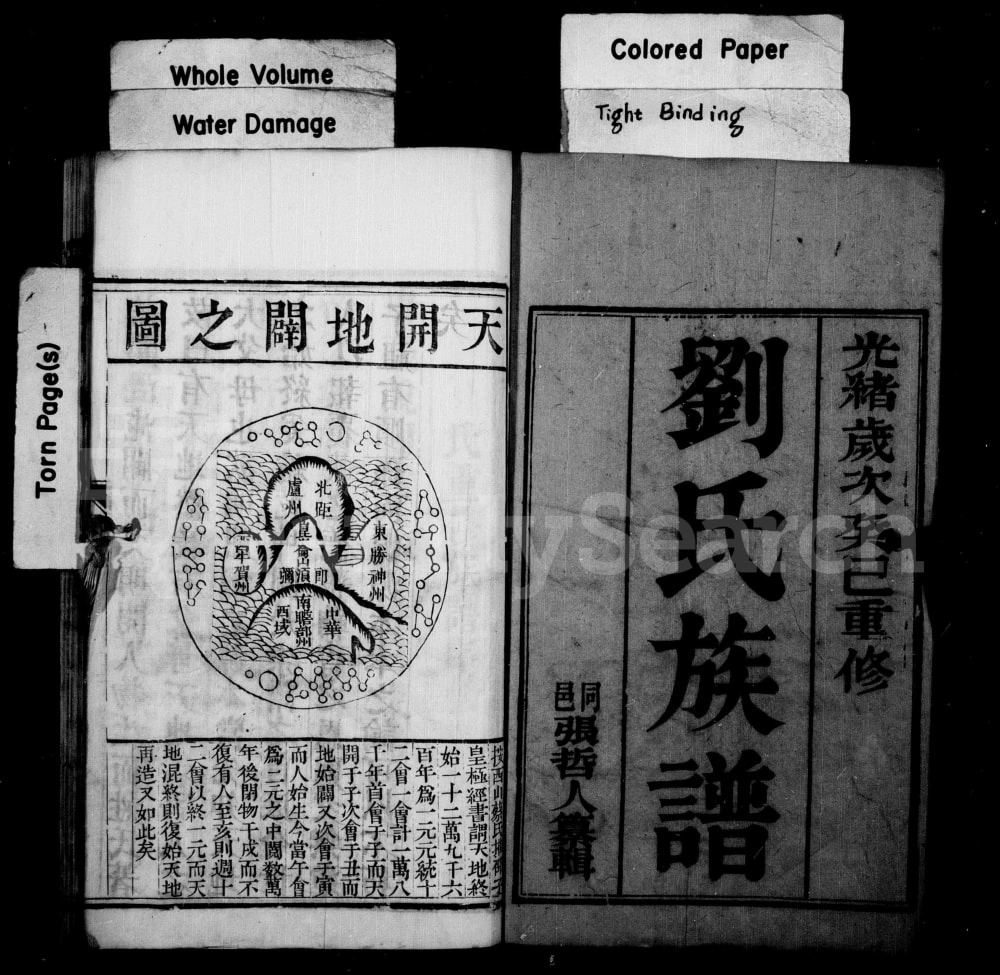 Whole Volume
Water Damage
Colored Paper
Tight Binding
Torn Page(s)
光緒歲次癸巳重修
劉氏族譜
同邑張哲人纂輯
天開地闢之圖
北距
盧州
東勝神州
崑崙山
須彌
郎
牢賀州
南贍部州
中華
西域
皇極經書謂天地終
始一十二萬九千六
百年為一元元統十
二會一會計一萬八
千年首會于子而天
開于子次會于丑而
地始闢又次會于寅
而人始生今當午會
為二元之中閱數萬
年後閉物于戌而不
復有人至亥則週十
二會以終一元而天
地混終則復始天地
再造又如此矣
FamilySearch